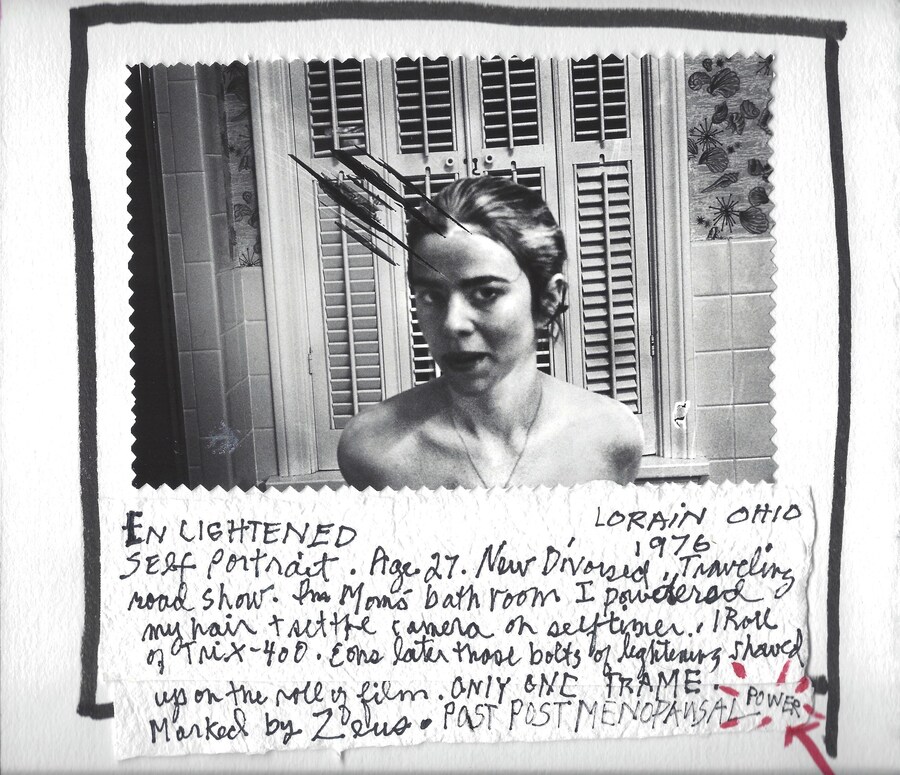 ENLIGHTENED
LORAIN OHIO
1976
Self Portrait. Age 27. New Divorsed, Traveling
road show. In Moms bathroom I powdered
my hair + set the camera on selftimer. 1 Roll
of TRiX-400. Eons later those bolts of lightening showed
up on the roll of film. ONLY ONE FRAME.
Marked by Zeus. POST POST MENOPAUSAL POWER